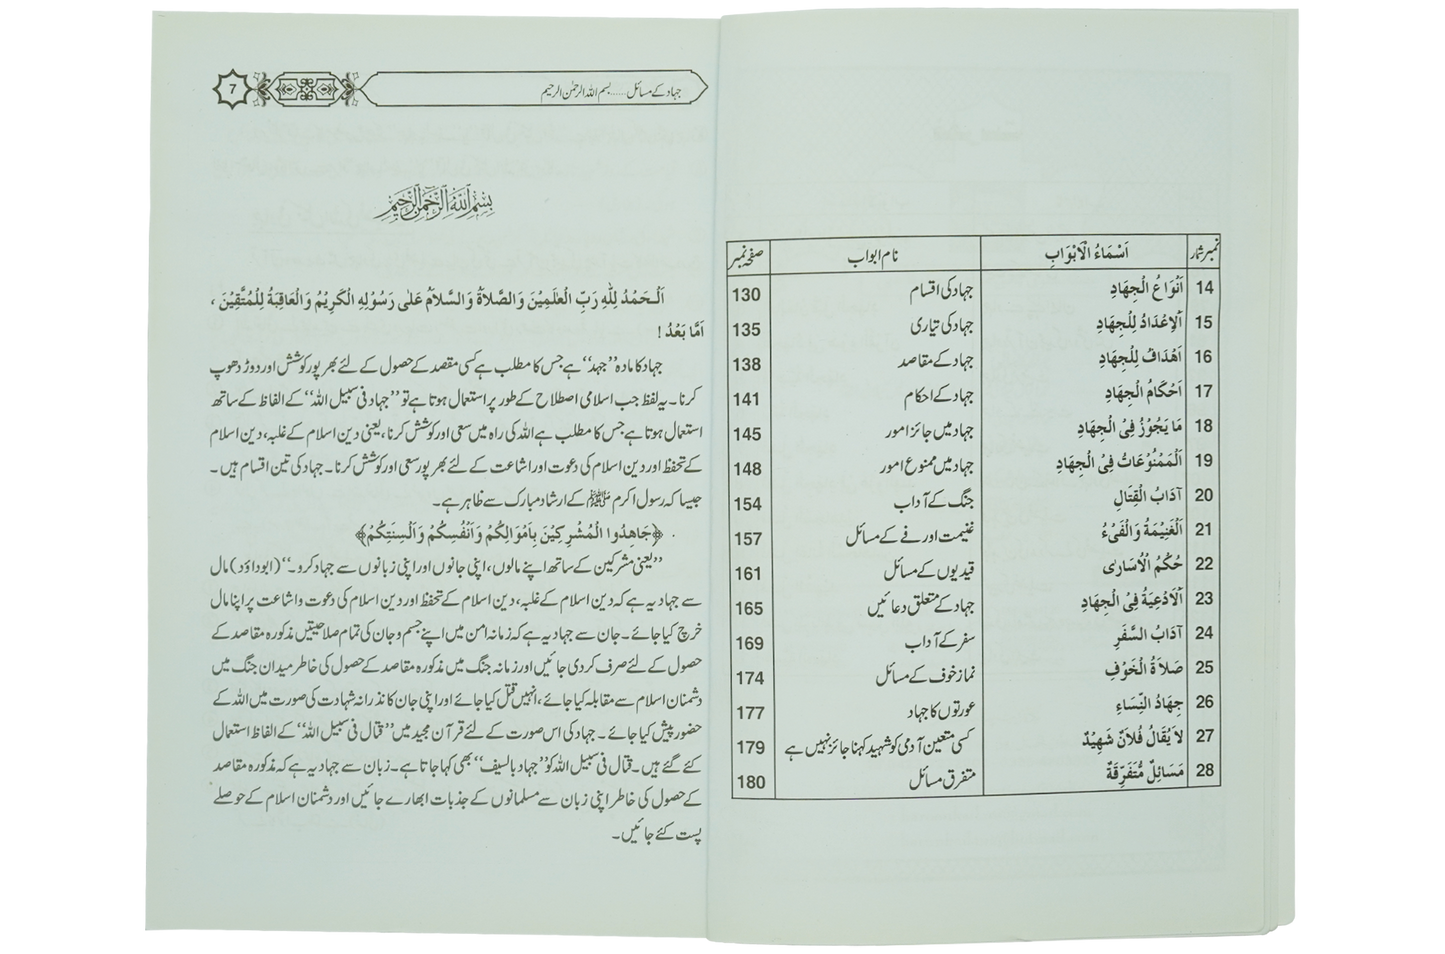 نمبر شمار | اَسْمَاءُ الْاَبْوَابِ | نام ابواب | صفحہ نمبر
14 | اَنْوَاعُ الْجِهَادِ | جہاد کی اقسام | 130
15 | اَلْاِعْدَادُ لِلْجِهَادِ | جہاد کی تیاری | 135
16 | اَهْدَافُ لِلْجِهَادِ | جہاد کے مقاصد | 138
17 | اَحْكَامُ الْجِهَادِ | جہاد کے احکام | 141
18 | مَا يَجُوْزُ فِى الْجِهَادِ | جہاد میں جائز امور | 145
19 | اَلْمَمْنُوْعَاتُ فِى الْجِهَادِ | جہاد میں ممنوع امور | 148
20 | آدَابُ الْقِتَالِ | جنگ کے آداب | 154
21 | اَلْغَنِيْمَةُ وَالْفَىْءُ | غنیمت اور فے کے مسائل | 157
22 | حُكْمُ الْاُسَارٰى | قیدیوں کے مسائل | 161
23 | اَلْاَدْعِيَةُ فِى الْجِهَادِ | جہاد کے متعلق دعائیں | 165
24 | آدَابُ السَّفَرِ | سفر کے آداب | 169
25 | صَلاَةُ الْخَوْفِ | نماز خوف کے مسائل | 174
26 | جِهَادُ النِّسَاءِ | عورتوں کا جہاد | 177
27 | لاَ يُقَالُ فُلاَنٌ شَهِيْدٌ | کسی متعین آدمی کو شہید کہنا جائز نہیں ہے | 179
28 | مَسَائِلٌ مُتَفَرِّقَةٌ | متفرق مسائل | 180
جہاد کے مسائل......بسم اللہ الرحمٰن الرحیم 7
بِسْمِ اللّٰهِ الرَّحْمٰنِ الرَّحِيْمِ
اَلْحَمْدُ لِلّٰهِ رَبِّ الْعٰلَمِيْنَ وَالصَّلاَةُ وَالسَّلاَمُ عَلٰى رَسُوْلِهِ الْكَرِيْمُ وَالْعَاقِبَةُ لِلْمُتَّقِيْنَ ،
اَمَّا بَعْدُ !
جہاد کا مادہ ”جہد“ ہے جس کا مطلب ہے کسی مقصد کے حصول کے لئے بھر پور کوشش اور دوڑ دھوپ
کرنا۔ یہ لفظ جب اسلامی اصطلاح کے طور پر استعمال ہوتا ہے تو ”جہاد فی سبیل اللہ“ کے الفاظ کے ساتھ
استعمال ہوتا ہے جس کا مطلب ہے اللہ کی راہ میں سعی اور کوشش کرنا، یعنی دین اسلام کے غلبہ، دین اسلام
کے تحفظ اور دین اسلام کی دعوت اور اشاعت کے لئے بھر پور سعی اور کوشش کرنا۔ جہاد کی تین اقسام ہیں۔
جیسا کہ رسول اکرم ﷺ کے ارشاد مبارک سے ظاہر ہے۔
﴿جَاهِدُوا الْمُشْرِكِيْنَ بِاَمْوَالِكُمْ وَاَنْفُسِكُمْ وَاَلْسِنَتِكُمْ﴾
”یعنی مشرکین کے ساتھ اپنے مالوں، اپنی جانوں اور اپنی زبانوں سے جہاد کرو۔“ (ابوداؤد) مال
سے جہاد یہ ہے کہ دین اسلام کے غلبہ، دین اسلام کے تحفظ اور دین اسلام کی دعوت و اشاعت پر اپنا مال
خرچ کیا جائے۔ جان سے جہاد یہ ہے کہ زمانہ امن میں اپنے جسم و جان کی تمام صلاحیتیں مذکورہ مقاصد کے
حصول کے لئے صرف کر دی جائیں اور زمانہ جنگ میں مذکورہ مقاصد کے حصول کی خاطر میدان جنگ میں
دشمنان اسلام سے مقابلہ کیا جائے، انہیں قتل کیا جائے اور اپنی جان کا نذرانہ شہادت کی صورت میں اللہ کے
حضور پیش کیا جائے۔ جہاد کی اس صورت کے لئے قرآن مجید میں ”قتال فی سبیل اللہ“ کے الفاظ استعمال
کئے گئے ہیں۔ قتال فی سبیل اللہ کو ”جہاد بالسیف“ بھی کہا جاتا ہے۔ زبان سے جہاد یہ ہے کہ مذکورہ مقاصد
کے حصول کی خاطر اپنی زبان سے مسلمانوں کے جذبات ابھارے جائیں اور دشمنان اسلام کے حوصلے
پست کئے جائیں۔